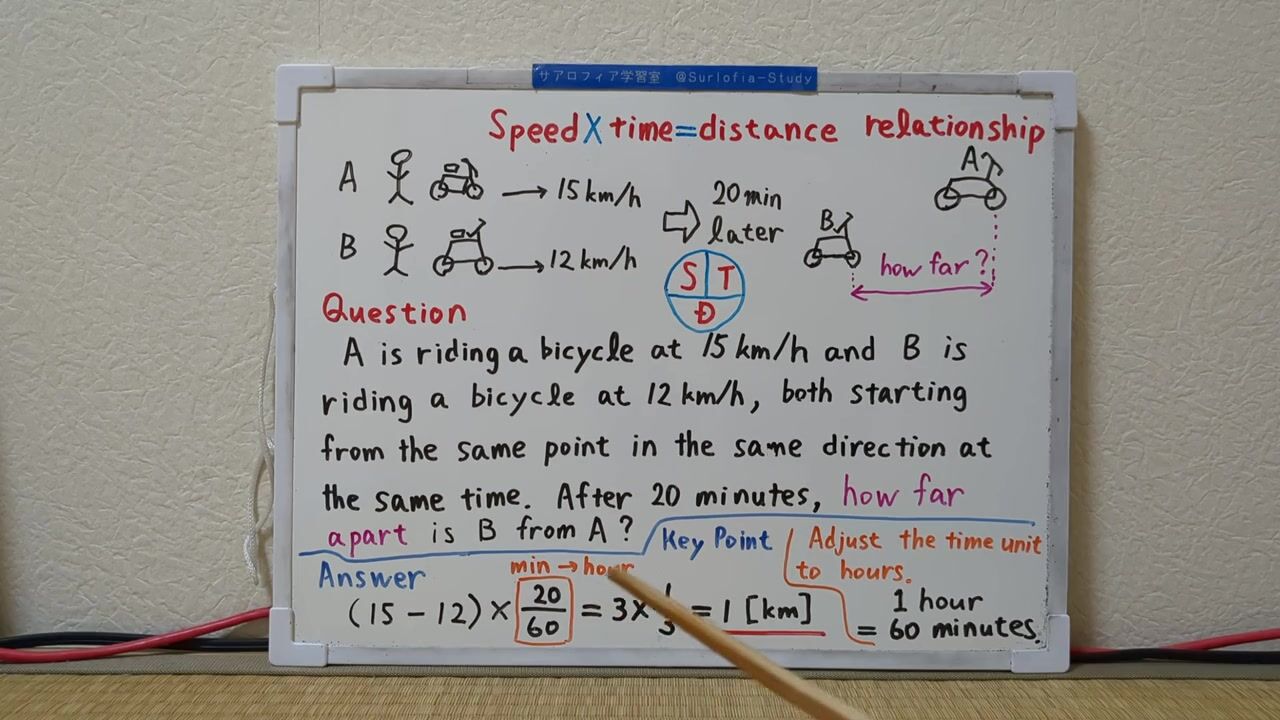 サアロフィア学習室 @Surlofia-Study
Speed X time = distance relationship
A → 15 km/h
B → 12 km/h
20 min
later
A
B
how far?
S T
D
Question
A is riding a bicycle at 15 km/h and B is
riding a bicycle at 12 km/h, both starting
from the same point in the same direction at
the same time. After 20 minutes, how far
apart is B from A?
Key Point
Adjust the time unit
to hours.
1 hour
= 60 minutes.
Answer
min → hour
(15 - 12) × 20/60 = 3 × 1/3 = 1 [km]